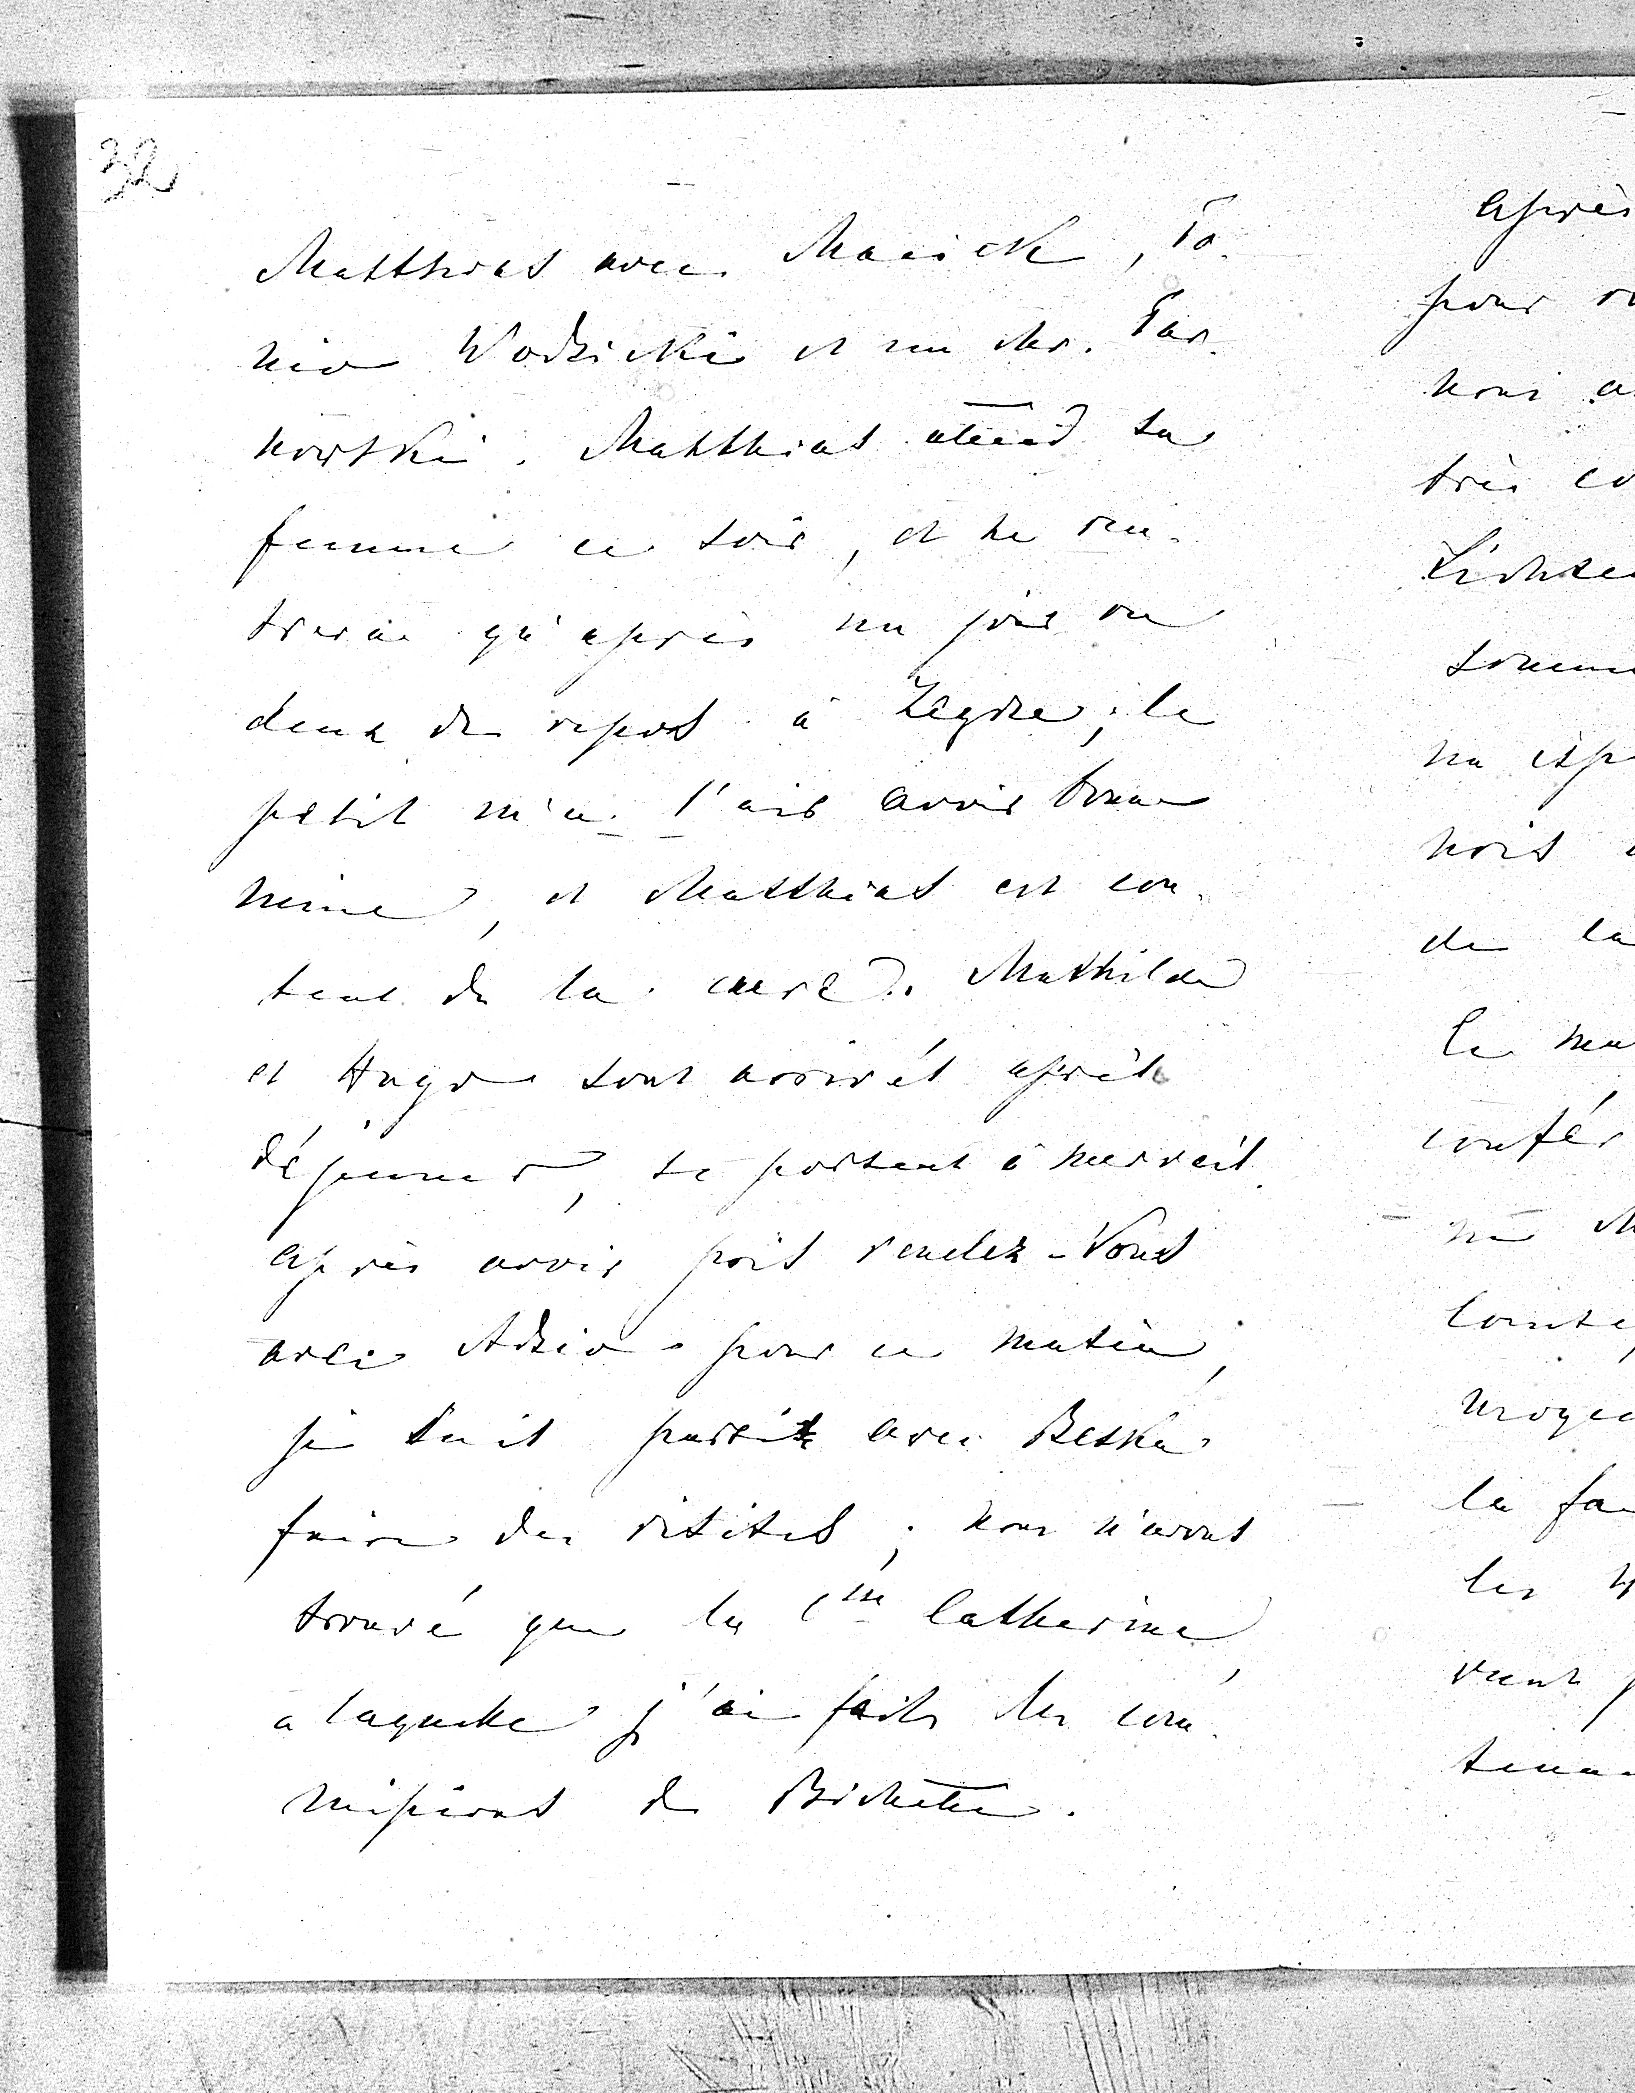 32
Matthias avec Maciek, To-
nio Wodzicki et un Mr. Tar-
nowski. Matthias attend sa
femme ce soir, et ne ren-
trera qu'après un jour ou
deux de repos à Zegrze; le
petit m'a l'air avoir bonne
mine, et Matthias est con-
tent de la cure. Mathilde
et Hugo sont arrivés après
déjeuner, se portent à merveil.
Après avoir pris rendez-vous
avec Adzio pour ce matin,
je suis partie avec Betka
faire des visites; nous n'avons
trouvé que la Css Catherine,
a laquelle j'ai fait les com-
missions de Bichette.
Après
pour
nous
très
somme
de la
le
la
les